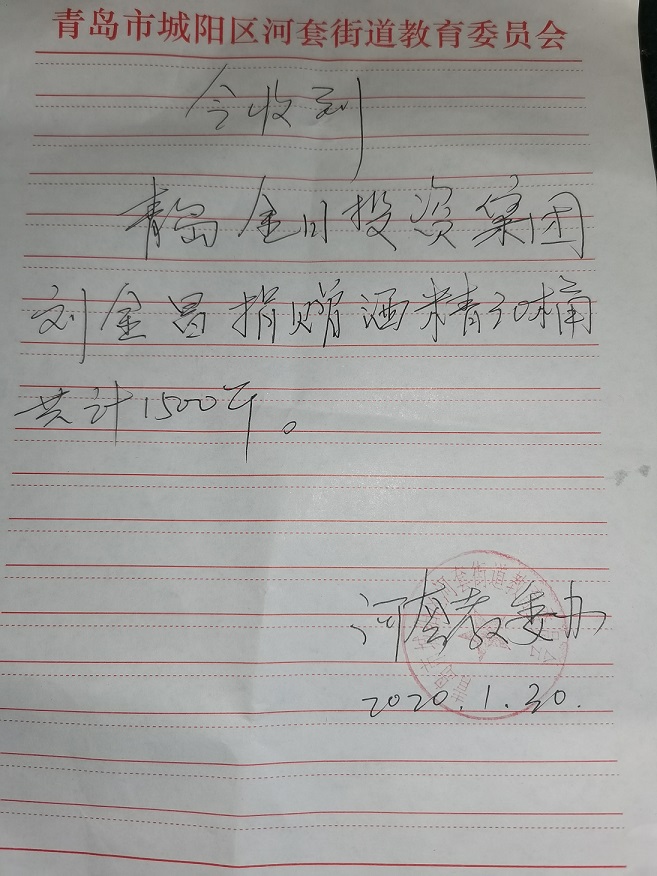 青岛市城阳区河套街道教育委员会
今收到
青岛金日投资集团
刘金昌捐赠酒精30桶
共计1500斤。
河套教委办
2020.1.30.